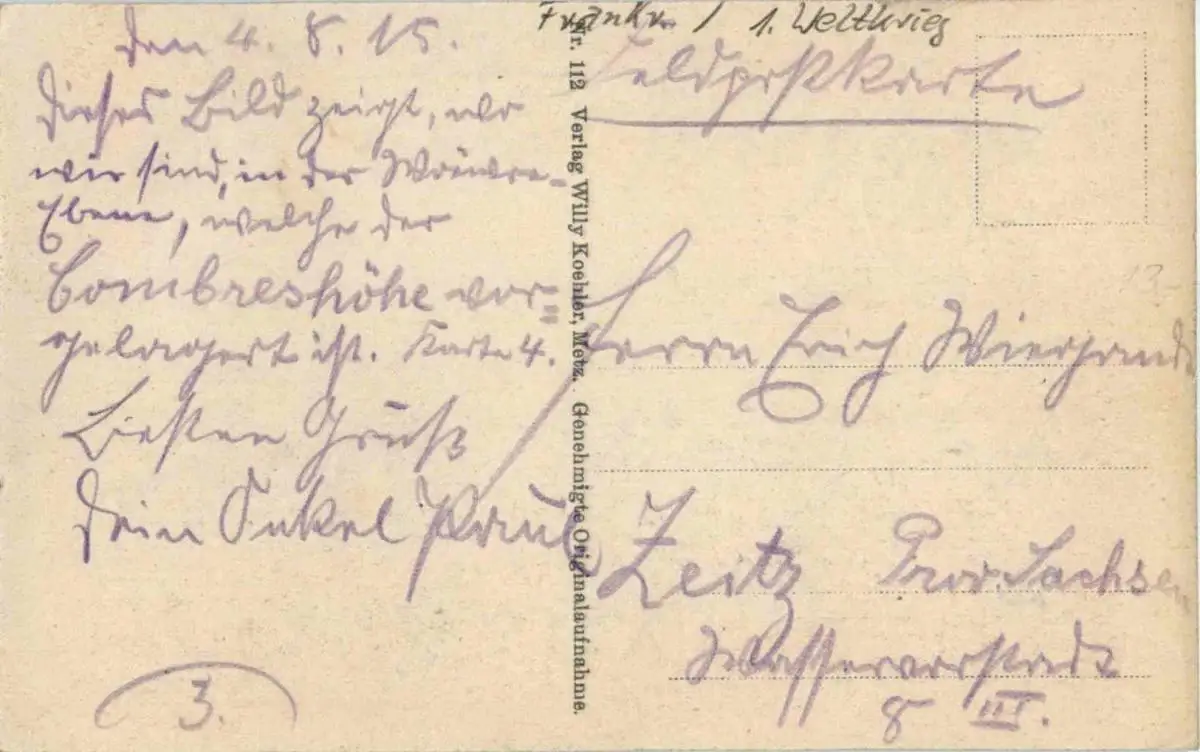 Frankr. / 1. Weltkrieg
den 4. 8. 15.
Dieses Bild zeigt, wo
wir sind, in der Woëwre-
Ebene, welche der
Combreshöhe vor-
gelagert ist. Karte 4.
Besten Gruß
Dein Onkel Paul
3.
Nr. 112 Verlag Willy Koehler, Metz. Genehmigte Originalaufnahme.
Feldpostkarte
13-
Herrn Erich Wiegand
Zeitz Prov. Sachsen
Wasservorstadt
8 III.